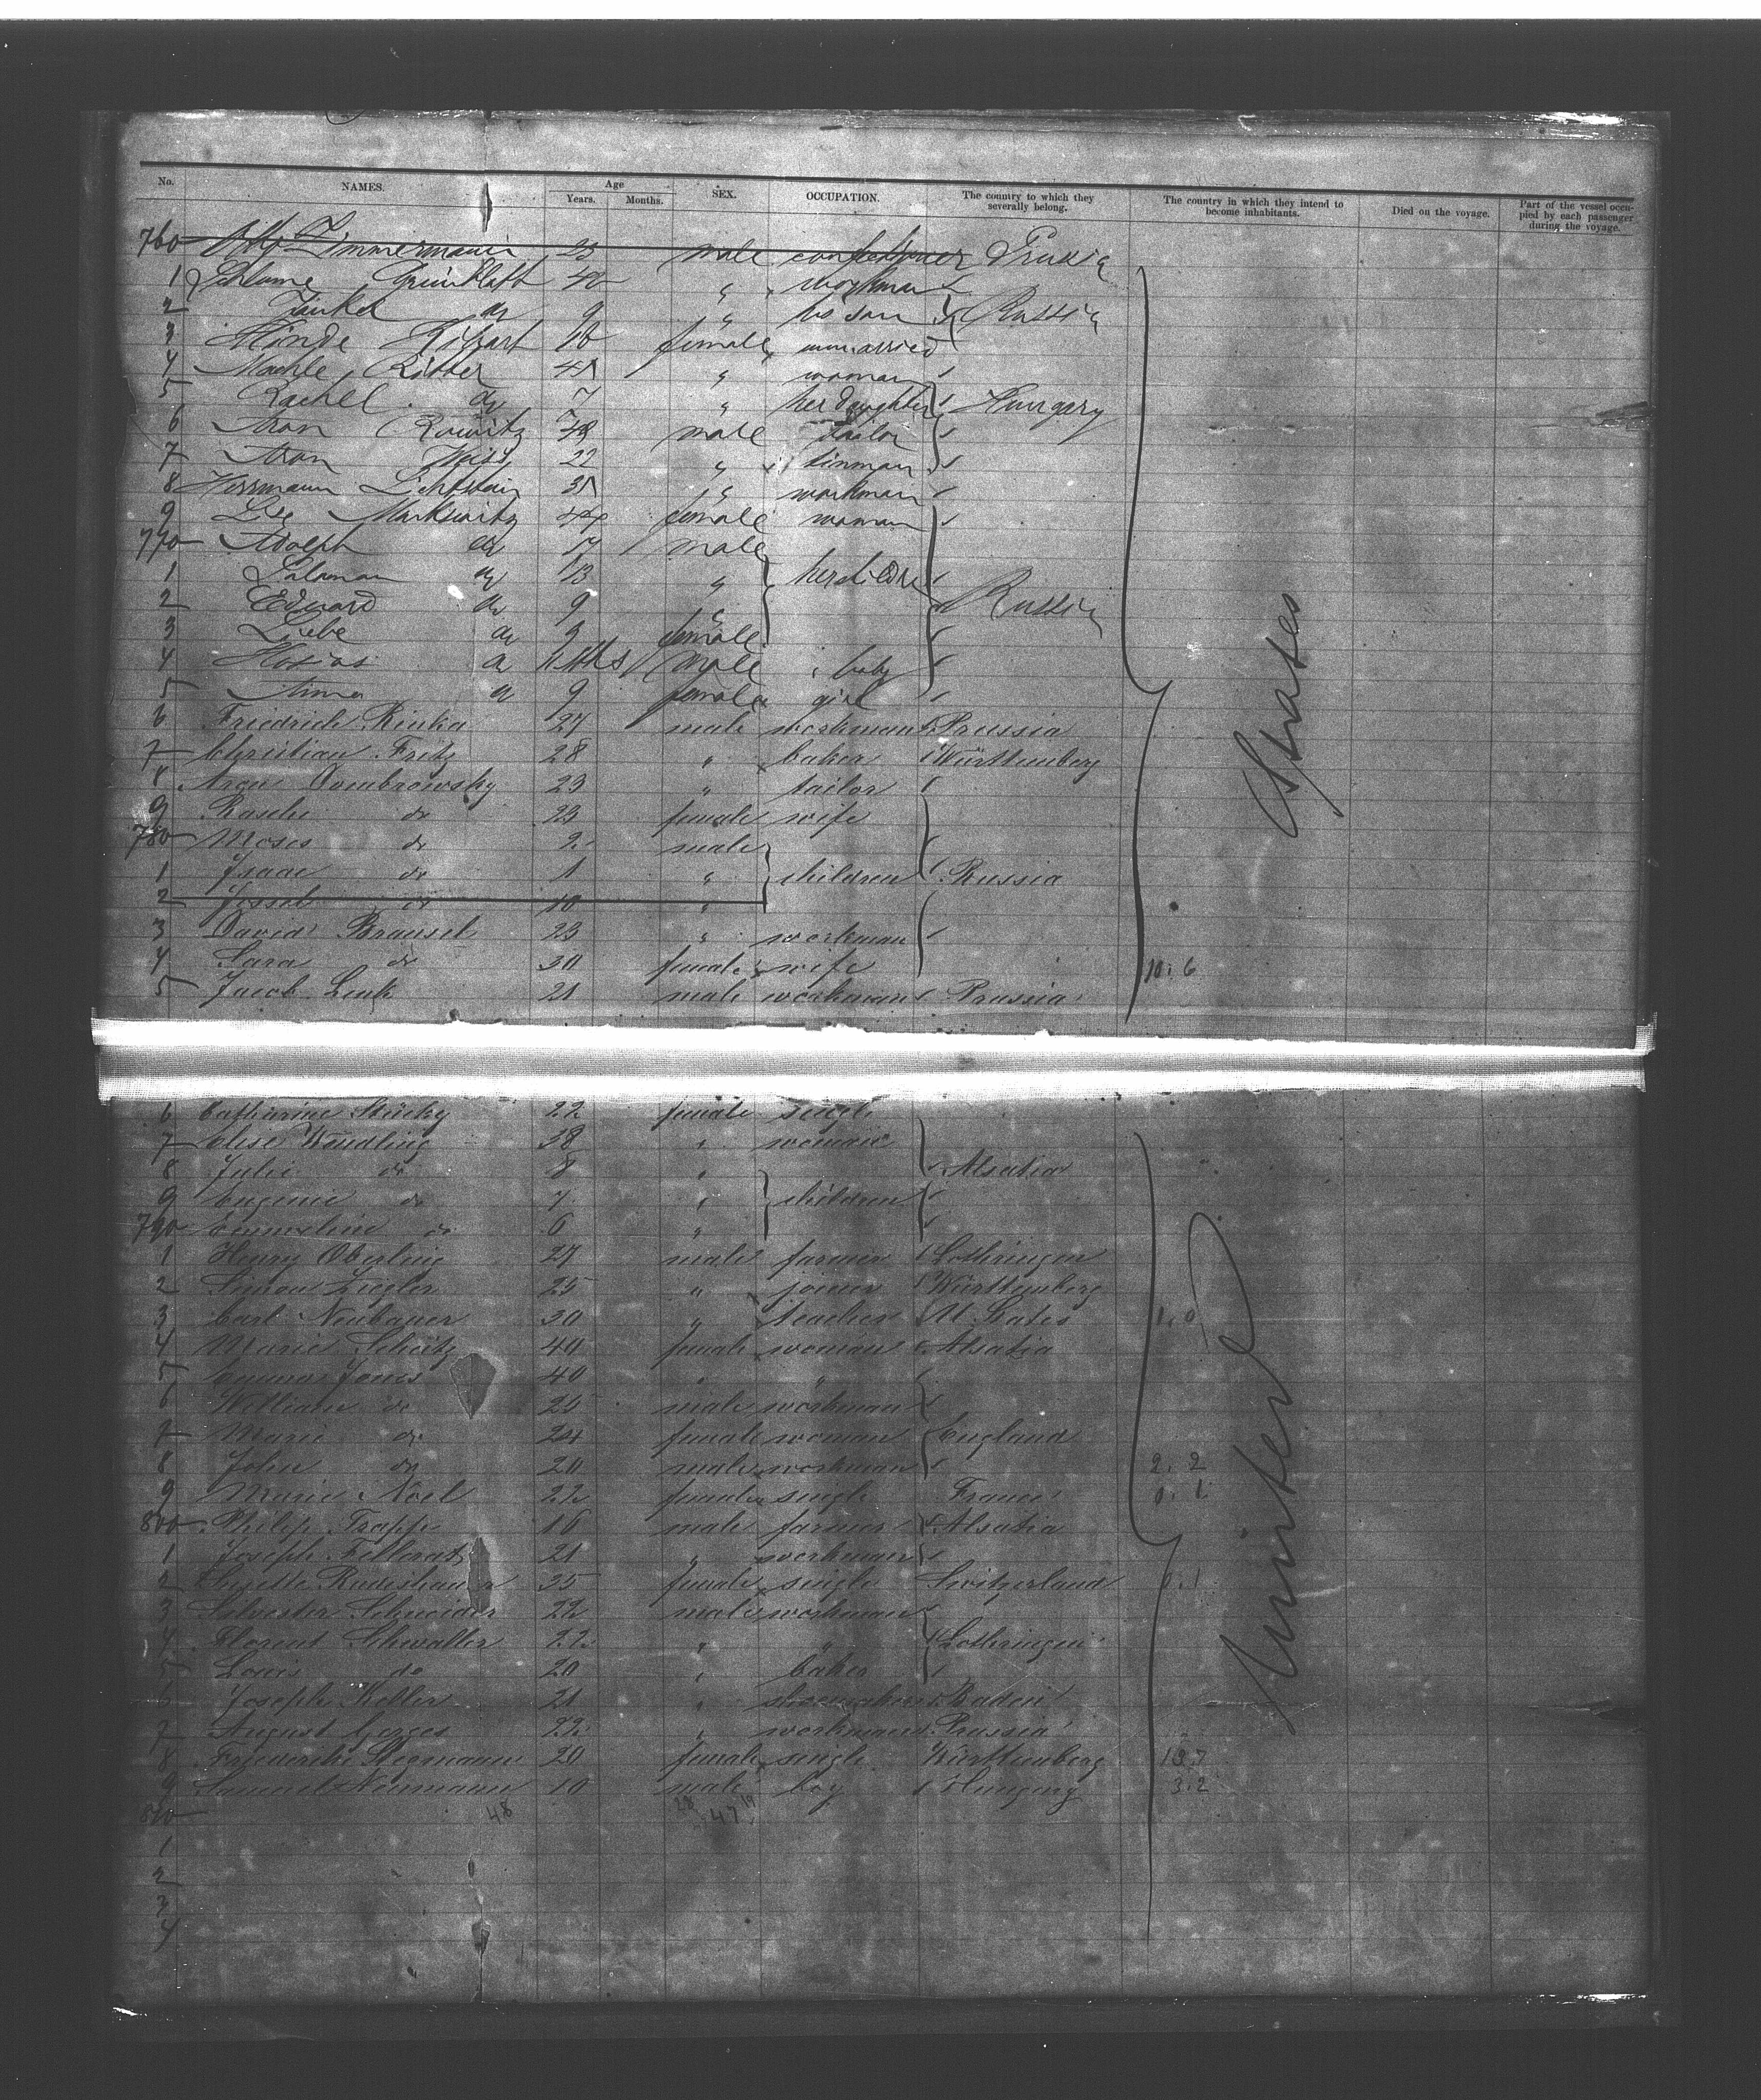 No. NAMES. Age Years. Months. SEX. OCCUPATION. The country to which they severally belong. The country in which they intend to become inhabitants. Died on the voyage. Part of the vessel occupied by each passenger during the voyage.
760 Zimmermann 23 male confectioner Prussia
1 Schlome Grünblatt 40 " workman
2 Jankel do 9 " his son Russia
3 Hinde female unmarried
4 Machle Ritter " woman
5 Rachel do 7 " her daughter Hungary
6 Aron male tailor
7 Aron Weiss 22 " tinman
8 Herrmann Lichtstein " workman
9 Markowitz 44 female woman
770 Adolph do 17 male
1 Salaman do 13 " her children
2 Edward do 9 " Russia
3 Liebe do 9 female
4 do 11 Mths male baby
5 do 9 female girl
6 Friedrich Rinka 27 male workman Prussia
7 Christian Fritz 28 " baker Württemberg
8 Aron Dombrowsky 23 " tailor
9 Rasche do 23 female wife
780 Moses do 2 male
1 Isaac do 1 " children Russia
2 Jossel do 10 "
3 David Brausel 23 " workman
4 Sara do 30 female wife 10. 6
5 Jacob Lenk 21 male workman Prussia
6 Catharine Stucky 22 female single
7 Elise Wendling 38 " woman
8 Julie do 8 " Alsatia
9 Eugenie do 7 " children
790 Emmeline do 6 "
1 Henry Oberling 27 male farmer Lothringen
2 Simon Ziegler 25 " joiner Württemberg
3 Carl Neubauer 30 " teacher U. States 1. 0
4 Marie Scheitz 40 female woman Alsatia
5 Emma Jones 40 " "
6 William do 25 male workman
7 Marie do 24 female woman England
8 John do 20 male workman 2. 2
9 Marie Noel 22 female single France 0. 1
800 Philip Trapp 16 male farmer Alsatia
1 Joseph Fellerath 21 " workman
2 35 female single Switzerland 0. 1
3 Silvester Schneider 22 male workman
4 Florent Schwaller 22 " " Lothringen
5 Louis do 20 " baker
6 Joseph Keller 21 " shoemaker Baden
7 August Gorges 22 " workman Prussia
8 Friederike Stegmann 20 female single Württemberg 13. 7
9 Samuel Neumann 10 male boy Hungary 3. 2
810 48 28 47 19
1
2
3
4
United States